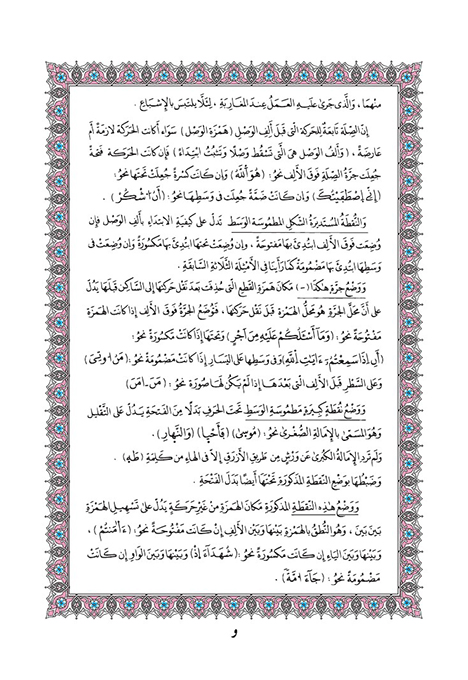 منهما، وَالَّذى جَرىٰ عَلَيهِ العَمَلُ عِندَ المغَارِبَةِ، لِئَلَّا يلتَبِسَ بالإشبَاعِ.
إنَّ الصِّلَةَ تَابِعَةٌ للحَرَكَةِ الَّتى قَبلَ أَلِفِ الوَصْلِ (هَمْزَةِ الوَصْلِ) سَوَاء أكَانَت الحَرَكَة لازمَة أم
عَارضَةً، (وَأَلِفُ الوَصْلِ هِىَ الَّتى تَسْقُطُ وَصْلًا وَتَثبُتُ ابتِدَاءً) فَإن كَانَت الحَرَكَة فَتحَة
جُعِلَت جرَّةُ الصِّلَةِ فَوقَ الأَلِفِ نحوُ: (هُوَ ٱللَّهُ) وَإن كَانَت كَسْرَةً جُعِلَت تَحتَهَا نحوُ:
(إِنِّي ٱصْطَفَيْتُكَ) وَإن كَانَت ضَمَّةً جُعِلَت فى وَسطِهَا نحوُ: (أَنُ ٱشْكُرْ).
وَالنُّقطَةُ المُستَدِيرَةُ الشَّكلِ المَطمُوسَةُ الوَسَطِ تدُلّ عَلى كَيفيَّةِ الابتدَاءِ بأَلفِ الوَصْلِ فإن
وُضِعَت فَوقَ الأَلِفِ ابتُدِئَ بهَا مَفتوحَةً، وإن وُضِعَت تَحتهَا ابتُدِئَ بهَا مَكسُورَةً وإن وُضِعَت فى
وَسطِهَا ابتُدِئَ بهَا مَضمُومَةً كَمَا رَأَيتَ فى الأَمثِلَةِ الثَّلاثَةِ السَّابِقَةِ.
وَوَضْعُ جَرَّةٍ هٰكَذَا (-) مَكَانَ هَمزَةِ القَطْعِ الَّتى حُذِفَت بَعدَ نَقلِ حَرَكَتهَا إلَى السَّاكِنِ قَبلَهَا يَدُلّ
عَلى أنَّ مَحَلَّ الجَرَّةِ هُوَ مَحَلُّ الهَمزَةِ قَبلَ نَقلِ حَرَكتِهَا، فَتُوضَعُ الجَرَّةُ فَوقَ الأَلِفِ إذَا كَانَت الهَمزَةُ
مَفتُوحَةً نحوُ: (وَمَآ أَسْـَٔلُكُمْ عَلَيْهِ مِنَ اَجْرٍ) وَتحتَهَا إذَا كَانَت مَكسُورَةً نحوُ:
(أَنِ اِذَا سَمِعْتُمُۥٓ ءَايَٰتِ ٱللَّهِ) وَفى وَسطِهَا عَلى اليَسَارِ إذَا كَانَت مَضمُومَةً نحوُ: (مَنُ ا۟وتِىَ)
وَعَلى السَّطْرِ قَبلَ الأَلِفِ الَّتى بَعدَهَا إذَا لَمْ يَكُن لَهَا صُورَةٌ نحوُ: (مَنَ -امَنَ)
وَوَضْعُ نُقطَةٍ كَبيرَةٍ مَطمُوسَةِ الوَسَطِ تَحتَ الحَرفِ بَدَلًا مِنَ الفَتحَةِ يَدُلّ عَلى التَّقْلِيلِ
وَهُوَ المسَمَّىٰ بِالإمَالَةِ الصُّغْرىٰ نحوُ: (مُوسىٰ) (فَأَحْيَا) (وَالنَّهَارِ).
وَلَم تَرِدِ الإمَالَةُ الكُبرىٰ عَن وَرْشٍ مِن طَرِيقِ الأَزرَقِ إلَّا فى الهَاءِ مِن كَلِمَةِ (طَهِ)
وَضَبْطُهَا بوَضْعِ النُّقطَةِ المَذكُورَةِ تَحتَهَا أَيضًا بَدَلَ الفَتْحَةِ.
وَوَضْعُ هٰذِهِ النُّقطَةِ المَذكُورَةِ مَكَانَ الهَمزَةِ مِنْ غَيْرِ حَرَكَةٍ يَدُلّ عَلىٰ تَسْهِيلِ الهَمْزَةِ
بَيْنَ بَيْنَ، وَهُوَ النُّطْقُ بِالهَمْزَةِ بَيْنَهَا وَبَيْنَ الأَلِفِ إِنْ كَانَتْ مَفْتُوحَةً نحوُ: (ءَا۬مَنتُم)،
وَبَيْنَهَا وَبَيْنَ اليَاءِ إن كَانَت مَكسُورَةً نحوُ: (شُهَدَآءَ اِ۬ذْ) وَبَيْنَهَا وَبَيْنَ الوَاوِ إن كَانَتْ
مَضْمُومَةً نحوُ: (جَآءَ ا۬مَّةٗ).
و